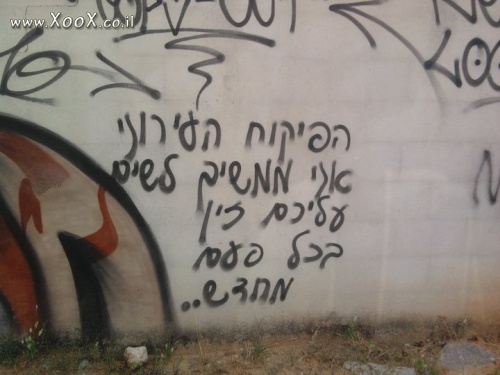 www.XooX.co.il
הפיקוח העירוני
אני ממשיך לשים
עליכם זין
בכל פעם
מחדש..